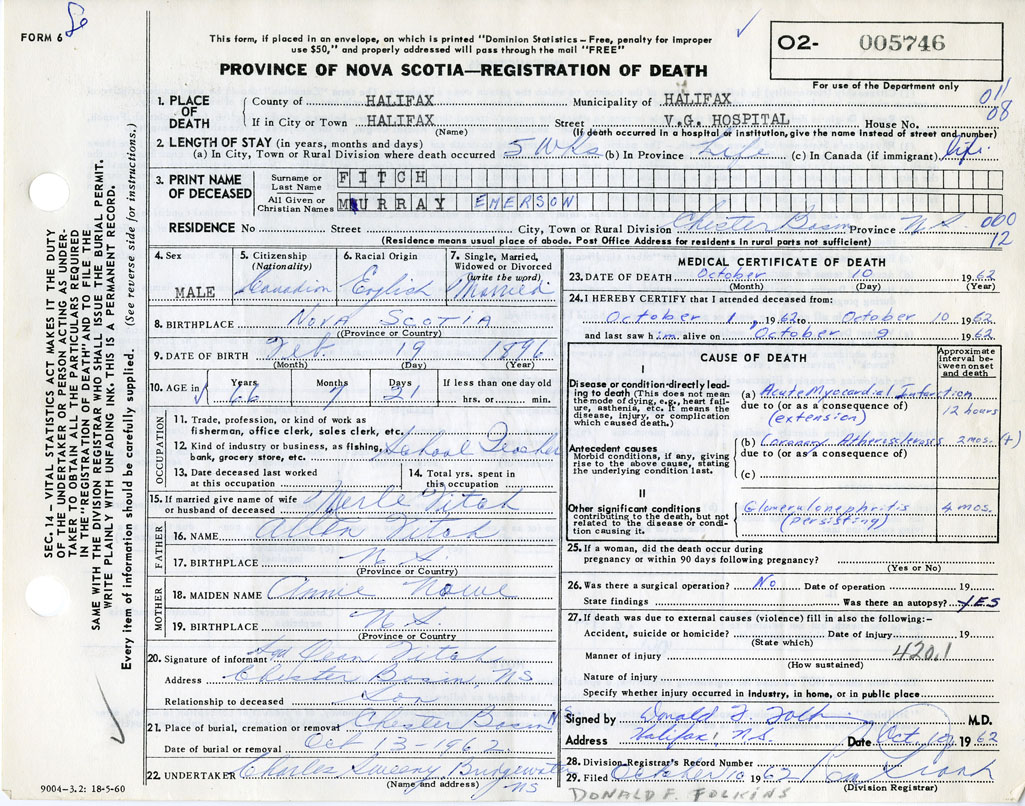 FORM 6
This form, if placed in an envelope, on which is printed "Dominion Statistics – Free, penalty for improper
use $50," and properly addressed will pass through the mail "FREE"
PROVINCE OF NOVA SCOTIA—REGISTRATION OF DEATH
02- 005746
For use of the Department only
011
08
1. PLACE OF DEATH
County of HALIFAX Municipality of HALIFAX
If in City or Town HALIFAX Street V.G. HOSPITAL House No.
(Name) (If death occurred in a hospital or institution, give the name instead of street and number)
2. LENGTH OF STAY (in years, months and days)
(a) In City, Town or Rural Division where death occurred 5 Wks (b) In Province Life (c) In Canada (if immigrant) life
3. PRINT NAME OF DECEASED
Surname or Last Name FITCH
All Given or Christian Names MURRAY EMERSON
RESIDENCE No Street City, Town or Rural Division Chester Basin Province N.S. 000
12
(Residence means usual place of abode. Post Office Address for residents in rural parts not sufficient)
4. Sex MALE
5. Citizenship (Nationality) Canadian
6. Racial Origin English
7. Single, Married, Widowed or Divorced (write the word) Married
8. BIRTHPLACE NOVA SCOTIA
(Province or Country)
9. DATE OF BIRTH Feb. 19 1896
(Month) (Day) (Year)
10. AGE in Years 66 Months 7 Days 21 If less than one day old
hrs. or min.
OCCUPATION
11. Trade, profession, or kind of work as
fisherman, office clerk, sales clerk, etc.
12. Kind of industry or business, as fishing,
bank, grocery store, etc. School Teacher
13. Date deceased last worked
at this occupation
14. Total yrs. spent in
this occupation
15. If married give name of wife
or husband of deceased Merle Fitch
FATHER
16. NAME Allen Fitch
17. BIRTHPLACE N.S.
(Province or Country)
MOTHER
18. MAIDEN NAME Annie Nowe
19. BIRTHPLACE N.S.
(Province or Country
20. Signature of informant Dean Fitch
Address Chester Basin, NS
Relationship to deceased Son
21. Place of burial, cremation or removal Chester Basin NS
Date of burial or removal Oct 13-1962
22. UNDERTAKER Charles Sweeny Bridgewater
(Name and address) NS
9004-3.2: 18-5-60
MEDICAL CERTIFICATE OF DEATH
23. DATE OF DEATH October 10 1962
(Month) (Day) (Year)
24. I HEREBY CERTIFY that I attended deceased from:
October 1, 1962 to October 10 1962
and last saw him alive on October 9 1962
CAUSE OF DEATH
Approximate interval between onset and death
I
Disease or condition directly leading to death (This does not mean the mode of dying, e.g., heart failure, asthenia, etc. It means the disease, injury, or complication which caused death.)
(a) Acute Myocardial Infarction
due to (or as a consequence of) 12 hours
(extension)
Antecedent causes
Morbid conditions, if any, giving rise to the above cause, stating the underlying condition last.
(b) Coronary Atherosclerosis 2 mos. (+)
due to (or as a consequence of)
(c)
II
Other significant conditions
contributing to the death, but not related to the disease or condition causing it.
Glomerulonephritis 4 mos.
(persisting)
25. If a woman, did the death occur during
pregnancy or within 90 days following pregnancy?
(Yes or No)
26. Was there a surgical operation? No Date of operation 19
State findings Was there an autopsy? YES
27. If death was due to external causes (violence) fill in also the following:–
Accident, suicide or homicide? Date of injury 19
(State which)
Manner of injury 420.1
(How sustained)
Nature of injury
Specify whether injury occurred in industry, in home, or in public place
Signed by Donald F. Folkins M.D.
Address Halifax, N.S. Date Oct 10, 1962
28. Division Registrar's Record Number
29. Filed October 10 1962
(Division Registrar)
DONALD F. FOLKINS
SEC. 14 – VITAL STATISTICS ACT MAKES IT THE DUTY
OF THE UNDERTAKER OR PERSON ACTING AS UNDER-
TAKER TO OBTAIN ALL THE PARTICULARS REQUIRED
IN THE "REGISTRATION OF DEATH" AND TO FILE THE
SAME WITH THE DIVISION REGISTRAR WHO SHALL ISSUE THE BURIAL PERMIT.
WRITE PLAINLY WITH UNFADING INK. THIS IS A PERMANENT RECORD.
Every item of information should be carefully supplied. (See reverse side for instructions.)